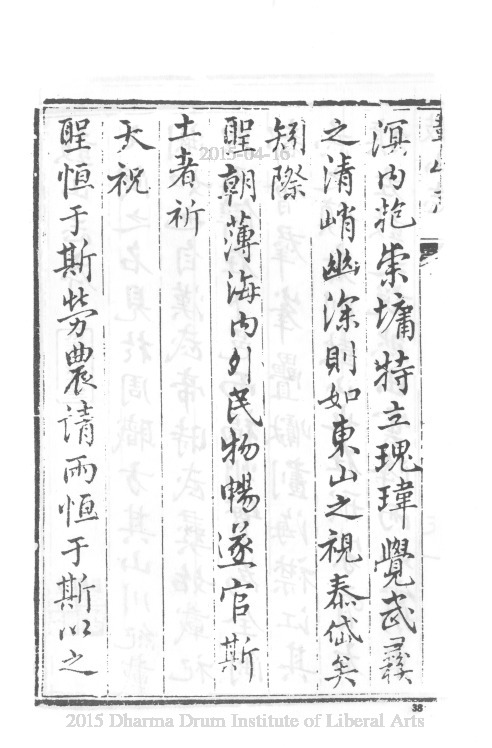 溟內抱崇墉特立瑰瑋覺武彛
之清峭幽深則如東山之視泰岱矣
矧際
聖朝薄海內外民物暢遂官斯
土者祈
天祝
聖恒于斯勞農請雨恒于斯以之
2015-04-16
38
2015 Dharma Drum Institute of Liberal Arts